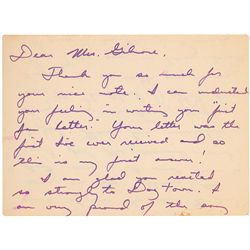 Dear Mrs. Gilmore.
Thank you so much for
your nice note. I can understand
your feeling in writing your "first
fan letter. Your letter was the
first I've ever received and so
this is my first answer!
I am glad you reacted
so strongly to Day Town. I
am very proud of the song